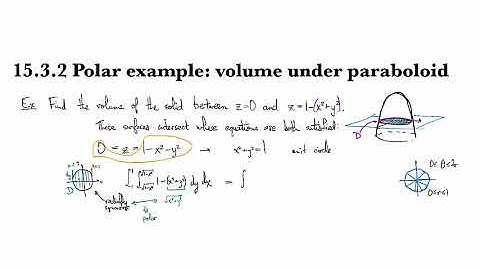 15.3.2 Polar example: volume under paraboloid
Ex: Find the volume of the solid between z=0 and z=1-(x²+y²).
These surfaces intersect where equations are both satisfied:
0 = z = 1-x²-y² → x²+y²=1 unit circle
D
0≤θ≤2π
D
∫ ∫ 1-(x²+y²) dy dx = ∫
0≤r≤1
radially
symmetric
polar